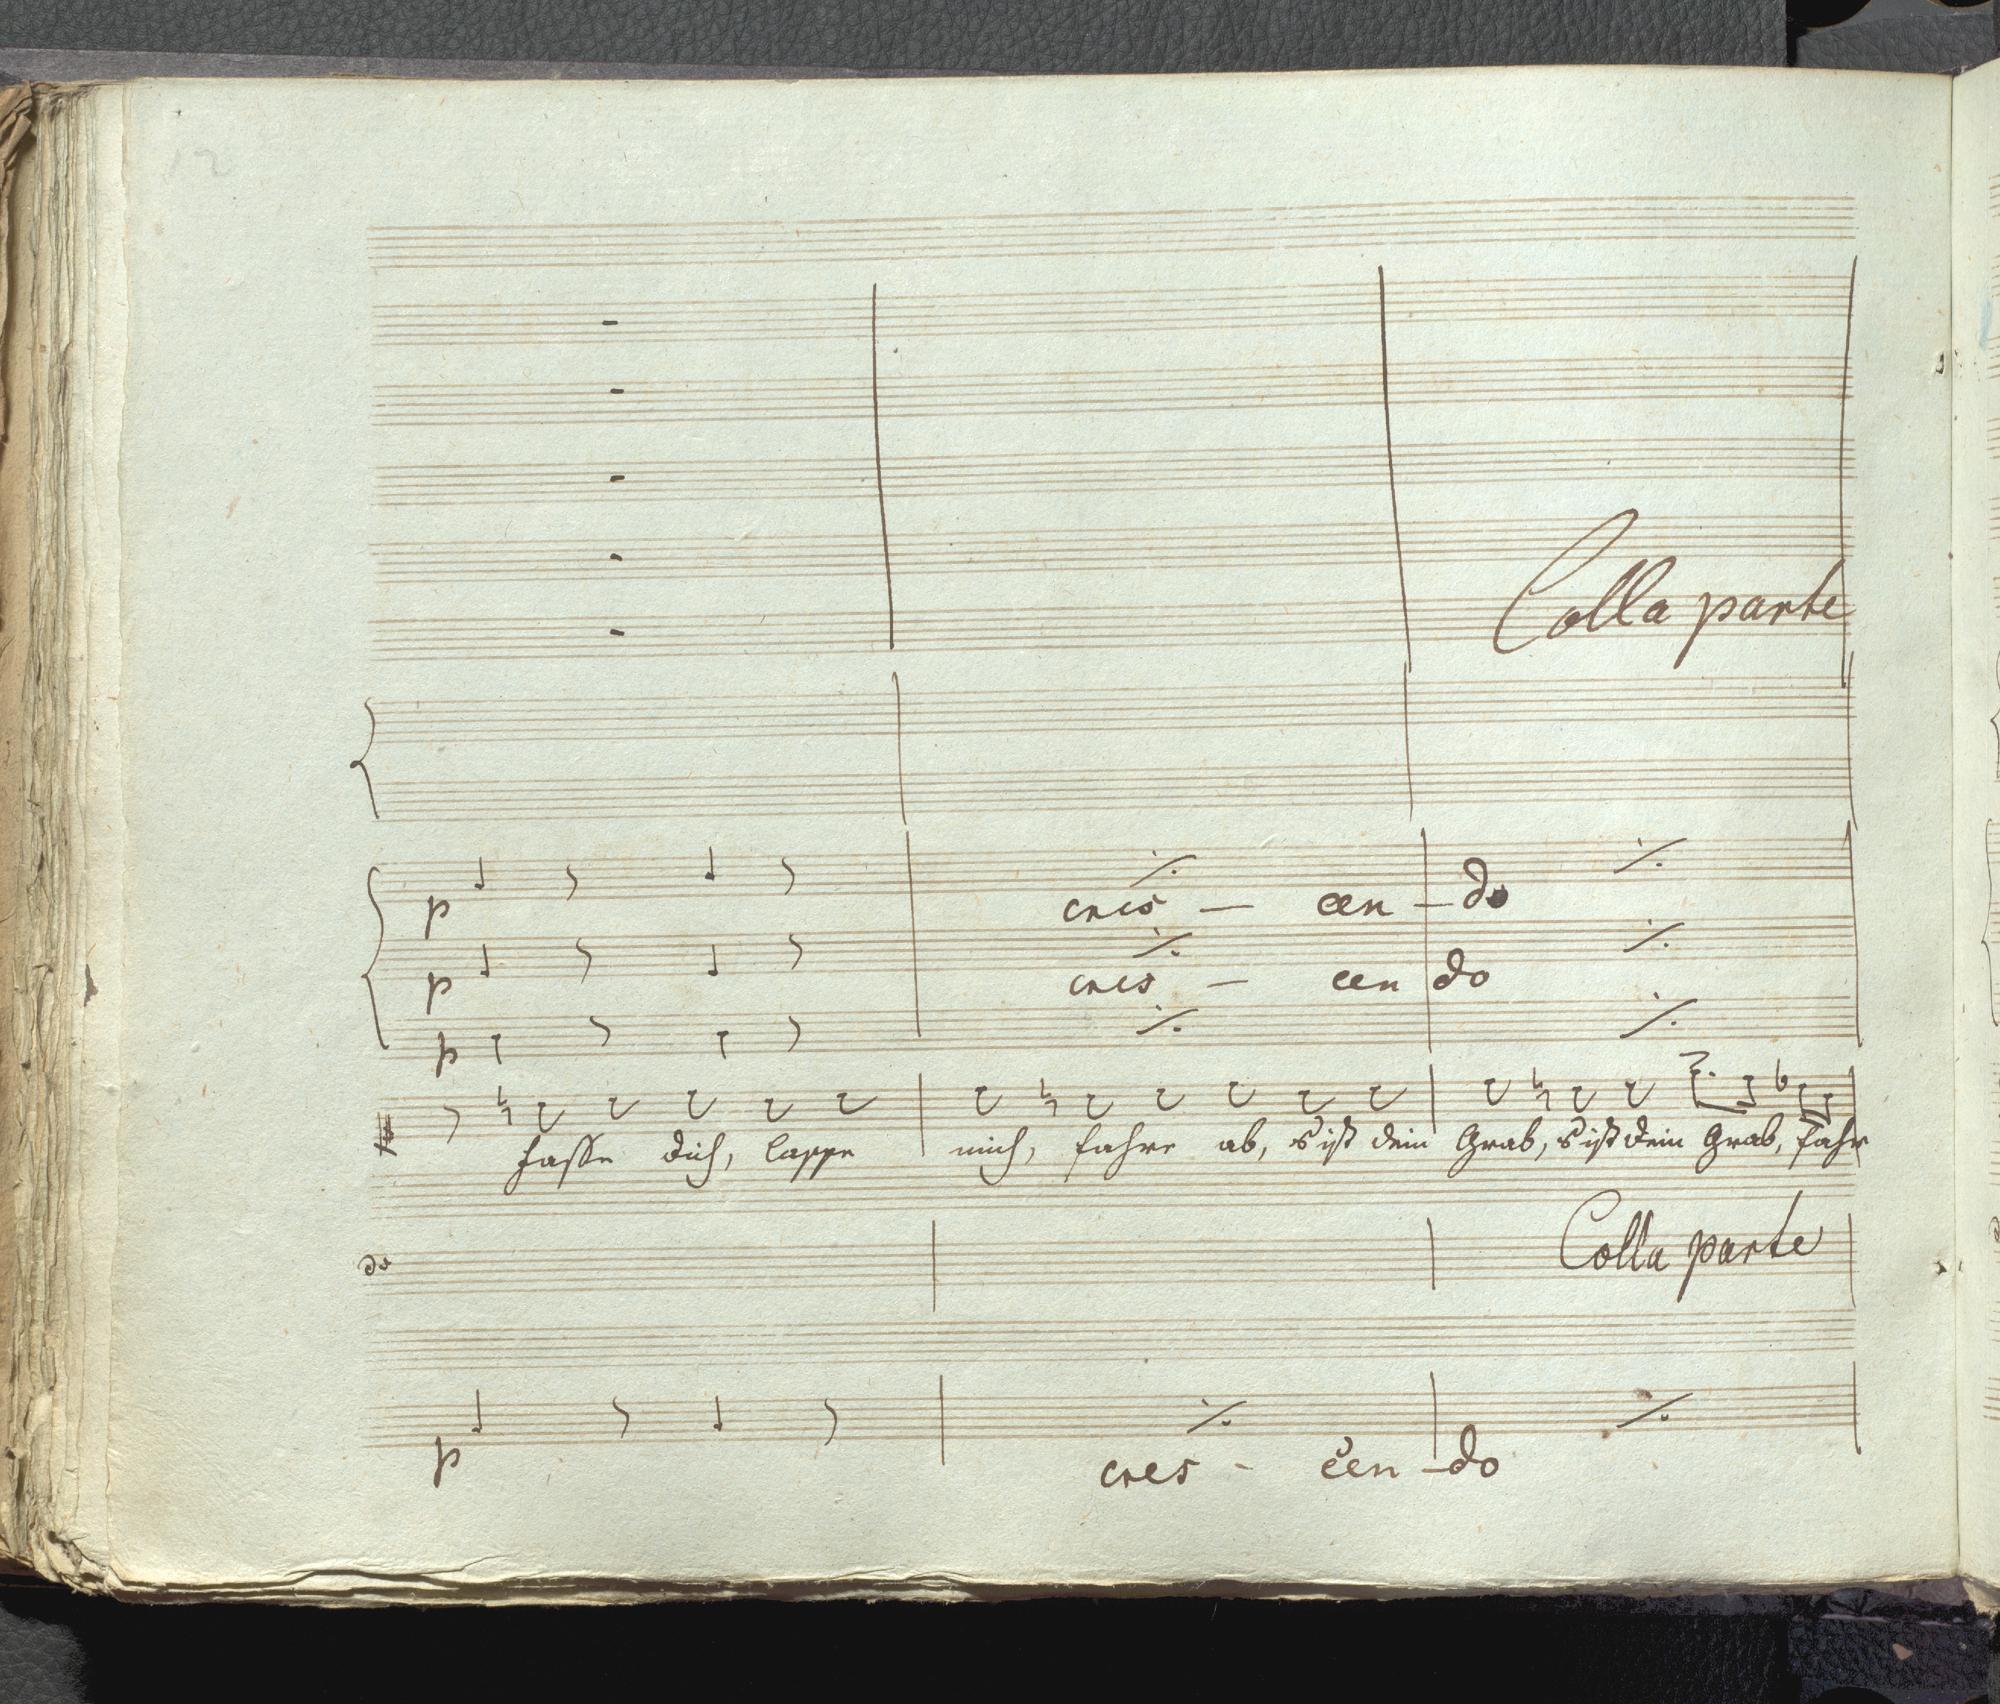 12
Colla parte
p cres – cen – do
p cres – cen do
p
fasse dich, lappe mich, fahre ab, s ist dein Grab, s ist dein Grab, fahr
do Colla parte
p cres - cen – do